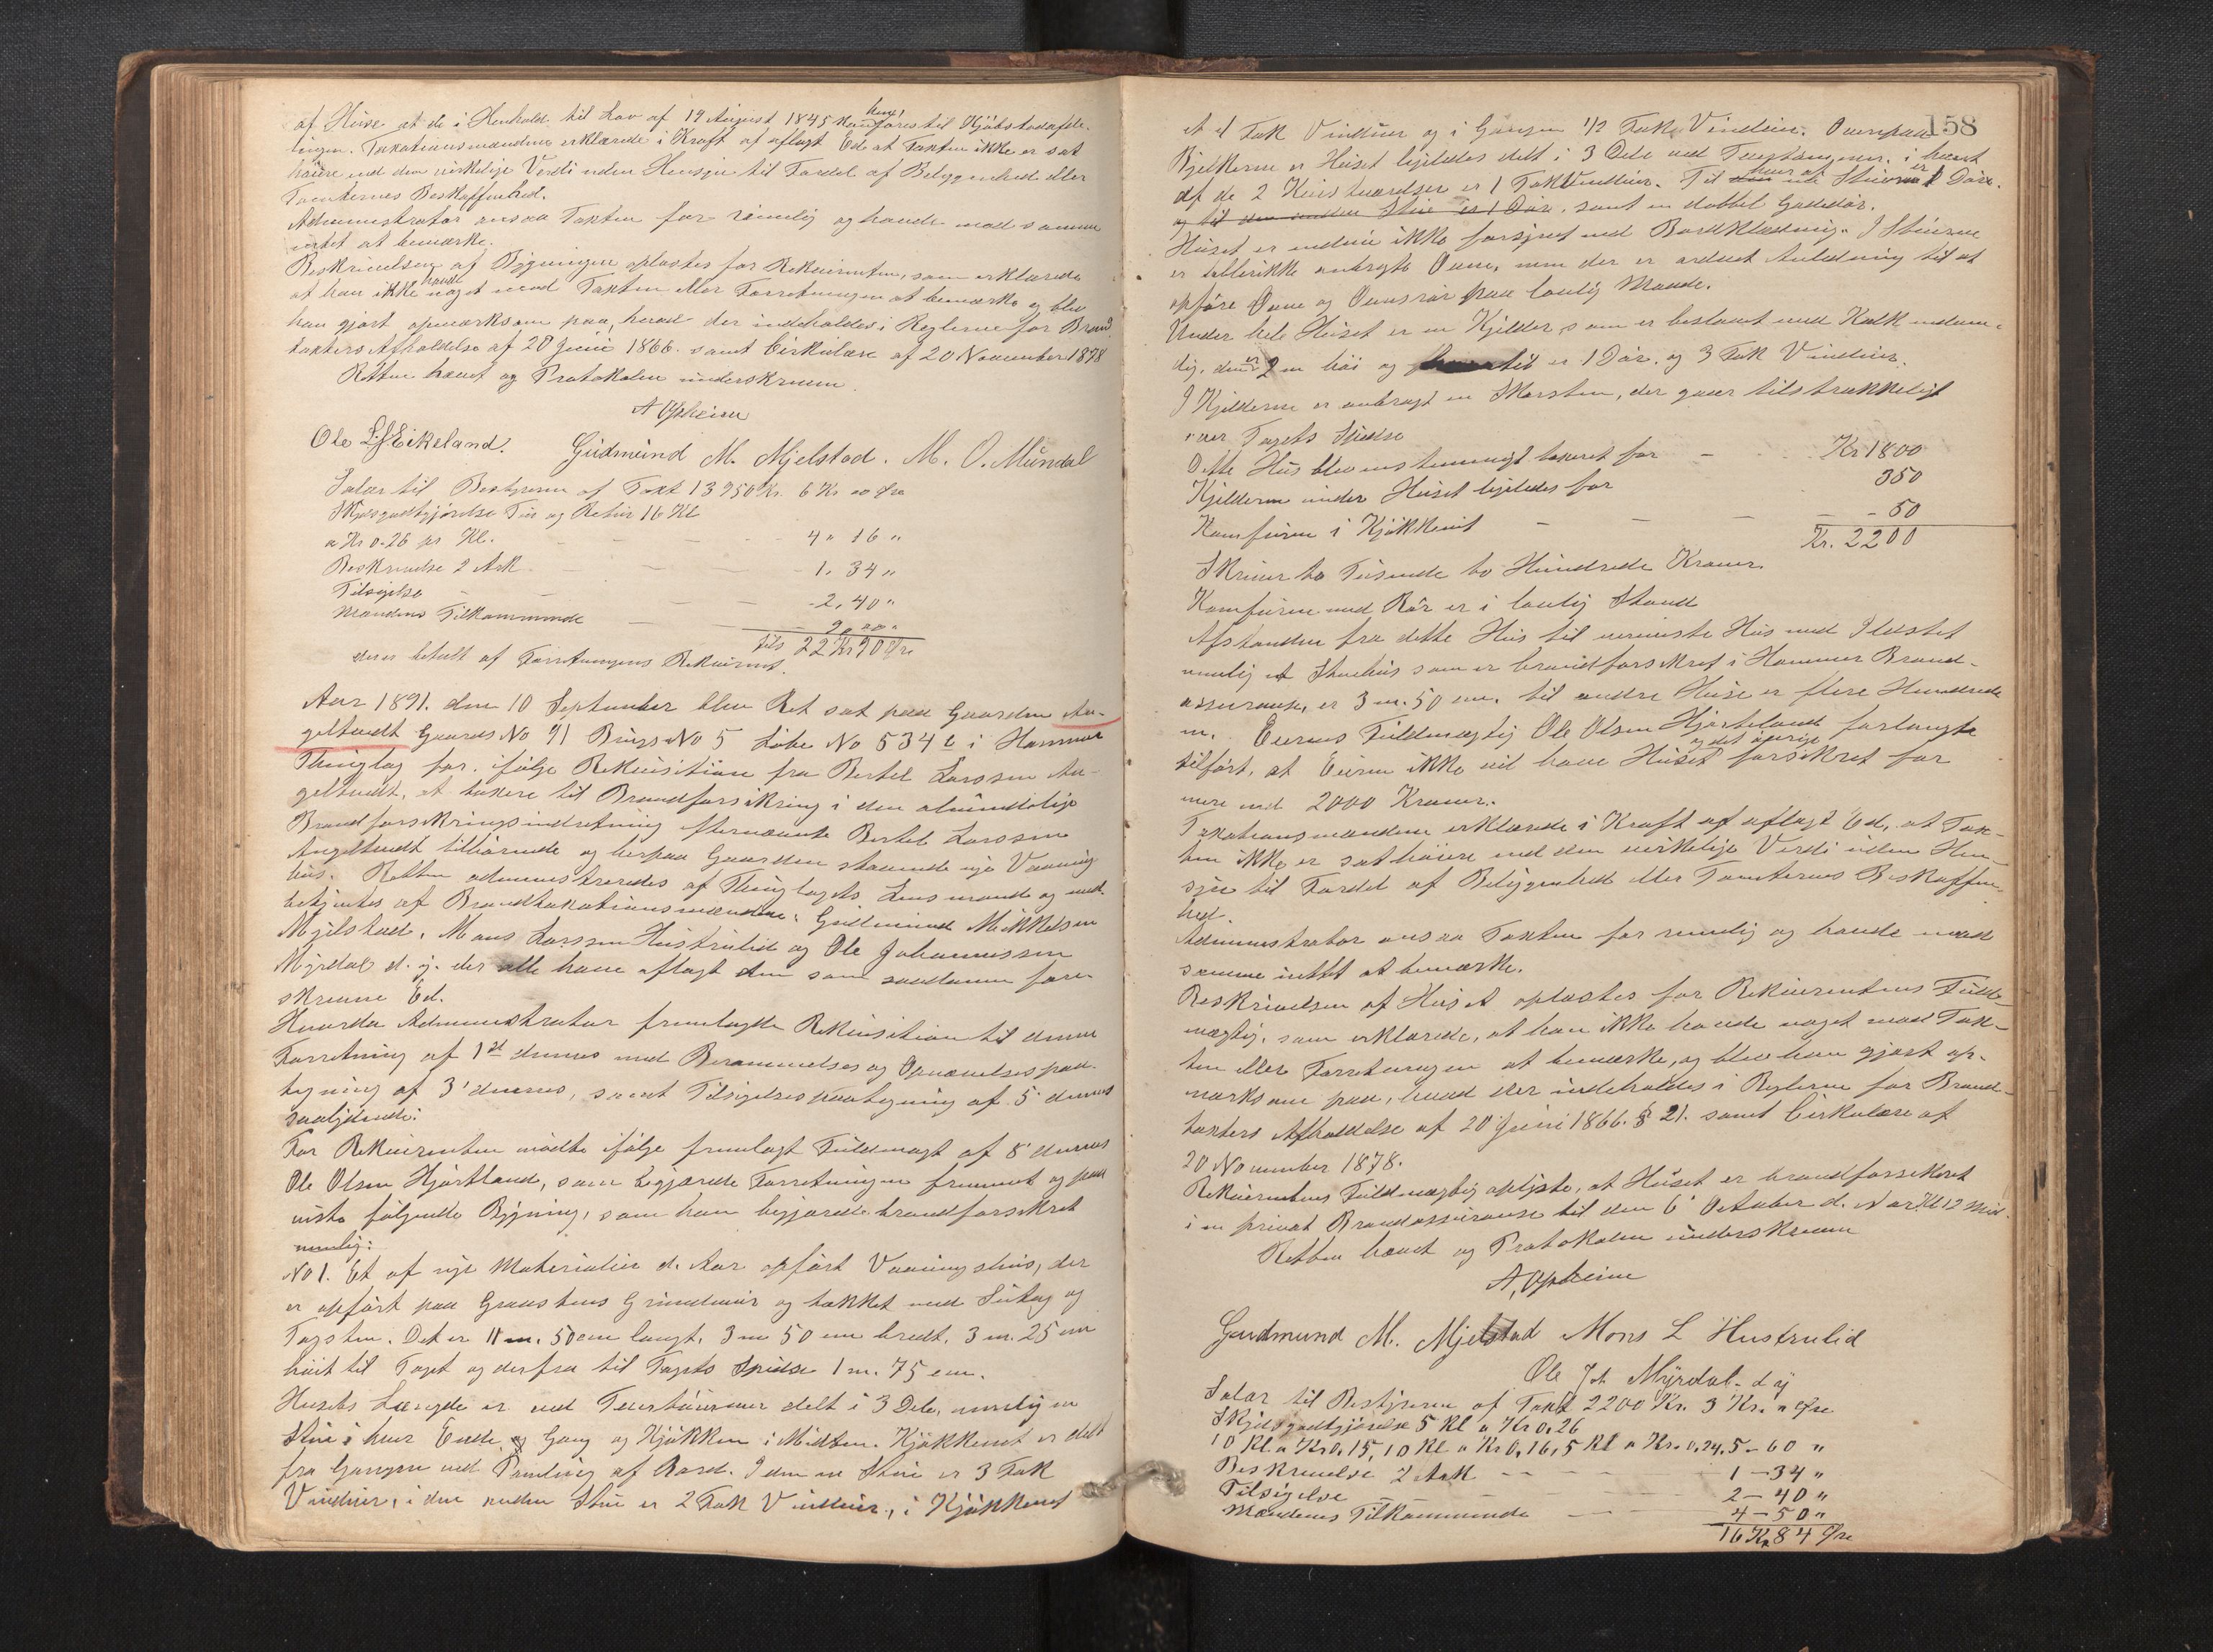 af Huse at de i Henhold til Lov af 19 August 1845 kan henføres til Kjøbstadafde-
lingen. Taxationsmændene erklærede i Kraft af aflagt Ed at Taxten ikke er sat
høiere end den virkelige Verdi uden Hensyn til Fordel af Beliggenhed eller
Tomternes Beskaffenhed.
Administrator ansaa Taxten for rimelig og havde mod samme
intet at bemærke.
Beskrivelsen af Bygningen oplæstes for Rekvirenten, som erklærede
at han ikke havde noget mod Taxten eller Forretningen at bemærke og blev
han gjort opmærksom paa, hvad der indeholdes i Reglerne for Brand
taxters Afholdelse af 20 Juni 1866 samt Cirkulære af 20 November 1878
Retten hævet og Protokolen underskreven.
A Opheim
Ole L. Eikeland. Gudmund M. Mjelstad. M. O. Mundal
Salær til Bestyreren af Taxt 13950 Kr. 6 Kr 00 Øre
Skydsgodtgjørelse Tur og Retur 16 Kl
a Kr 0.26 pr Kl. - - - 4 " 16 "
Beskrivelse 2 Ark - - - 1. 34 "
Tilsigelse - - - 2. 40 "
Mændenes Tilkommende - - 9 " 00 "
tils 22 Kr 90 Øre
der er betalt af Forretningens Rekvirent.
Aar 1891. den 10 September blev Ret sat paa Gaarden An-
geltveit Gaards No 91 Brugs No 5 Løbe No 534 c i Hammer
Thinglag for ifølge Rekvisition fra Bertel Larssen An-
geltveit, at taxere til Brandforsikring i den almindelige
Brandforsikringsindretning efternævnte Bertel Larssen
Angeltveit tilhørende og herpaa Gaarden staaende nye Vaaning
hus. Retten administreredes af Thinglagets Lensmand og med-
betjentes af Brandtaxationsmændene: Gudmund Mikkelsen
Mjelstad, Mons Larssen Hustrulid og Ole Johannessen
Myrdal d. y. der alle have aflagt den som saadanne fore-
skrevne Ed.
Hvorda Administrator fremlagde Rekvisition til denne
Forretning af 1st dennes med Berammelses og Opnævnelsespaa-
tegning af 3' dennes, samt Tilsigelsespaategning af 5' dennes
saalydende:
For Rekvirenten mødte ifølge fremlagt Fuldmagt af 8' dennes
Ole Olsen Hjortland, som begjærede Forretningen fremmet og paa
viste følgende Bygning, som han begjærede brandforsikret
nemlig:
No 1. Et af nye Materialier d. Aar opført Vaaningshus, der
er opført paa Graastens Grundmur og tækket med Sutag og
Tagsten. Det er 11 m. 50 cm langt, 3 m 50 cm bredt, 3 m. 25 cm
høit til Taget og derfra til Tagets Spidse 1 m. 75 cm.
Husets Længde er ved Tvertømmer delt i 3 Dele, nemlig en
Stue i hver Ende og Gang og Kjøkken i Midten. Kjøkkenet er delt
fra Gangen ved Paneling af Bord. I den ene Stue er 3 Fak
Vinduer, i den anden Stue er 2 Fak Vinduer, i Kjøkkenet
158
et 1 Fak Vinduer og i Gangen 1/2 Fak Vinduer. Ovenpaa
Bjelkerne er Huset ligeledes delt i 3 Dele ved Tvertømmer, i hvert
af de 2 Kvistværelser er 1 Fak Vinduer. Til hver af Stuerne er 1 Dør.
og til den anden Stue er 1 Dør, samt en dobbel Gadedør.
Huset er endnu ikke forsynet med Bordklædning. I Stuerne
er ikke anbragte Ovne, men der er ordnet Anledning til at
opføre Ovne og Ovnsrør paa lovlig Maade.
Under hele Huset er en Kjelder som er beslaaet med Kalk indven-
dig, den er 2 m høi og til er 1 Dør og 3 Fak Vinduer.
I Kjelderen er anbragt en Skorsten, der gaaer tilstrækkeligt
over Tagets Spidse
Dette Hus blev enstemmigt taxeret for - Kr 1800
Kjelderen under Huset ligeledes for 350
Komfuren i Kjøkkenet - - - 50
Kr. 2200
Skriver to Tusende to Hundrede Kroner.
Komfuren med Rør er i lovlig Stand
Afstanden fra dette Hus til nærmeste Hus med Ildsted
nemlig et Stuehus som er brandforsikret i Hammer Brand-
assurance, er 3 m. 50 cm. til andre Huse er flere Hundrede
m. Eierens Fuldmægtig Ole Olsen Hjorteland forlangte
tilført, at Eieren ikke vil have Huset og det øvrige forsikret for
mere end 2000 Kroner.
Taxationsmændene erklærede i Kraft af aflagt Ed, at Tax-
ten ikke er sat høiere end den virkelige Verdi uden Hen-
syn til Fordel af Beliggenhed eller Tomternes Beskaffen-
hed.
Administrator ansaa Taxten for rimelig og havde mod
samme intet at bemærke.
Beskrivelsen af Huset oplæstes for Rekvirentens Fuld-
mægtig, som erklærede, at han ikke havde noget mod Tax-
ten eller Forretningen at bemærke, og blev han gjort op-
mærksom paa, hvad der indeholdes i Reglerne for Brand-
taxters Afholdelse af 20 Juni 1866. § 21. samt Cirkulære af
20 November 1878.
Rekvirentens Fuldmægtig oplyste, at Huset er brandforsikret
i en privat Brandassurance til den 6' October d. A Kl 12 Mid.
Retten hævet og Protokolen underskreven
A. Opheim
Gudmund M. Mjelstad Mons L Hustrulid
Ole Joh Myrdal d y
Salær til Bestyreren af Taxt 2200 Kr. 3 Kr. " Øre
Skydsgodtgjørelse 5 Kl a Kr 0,26
10 Kl. a Kr 0,15, 10 Kl a Kr 0,16, 5 Kl a Kr. 0,24. 5 - 60 "
Beskrivelse 2 Ark - - - 1 - 34 "
Tilsigelse - - - 2 - 40 "
Mændenes Tilkommende - - 4 - 50 "
16 Kr 84 Øre